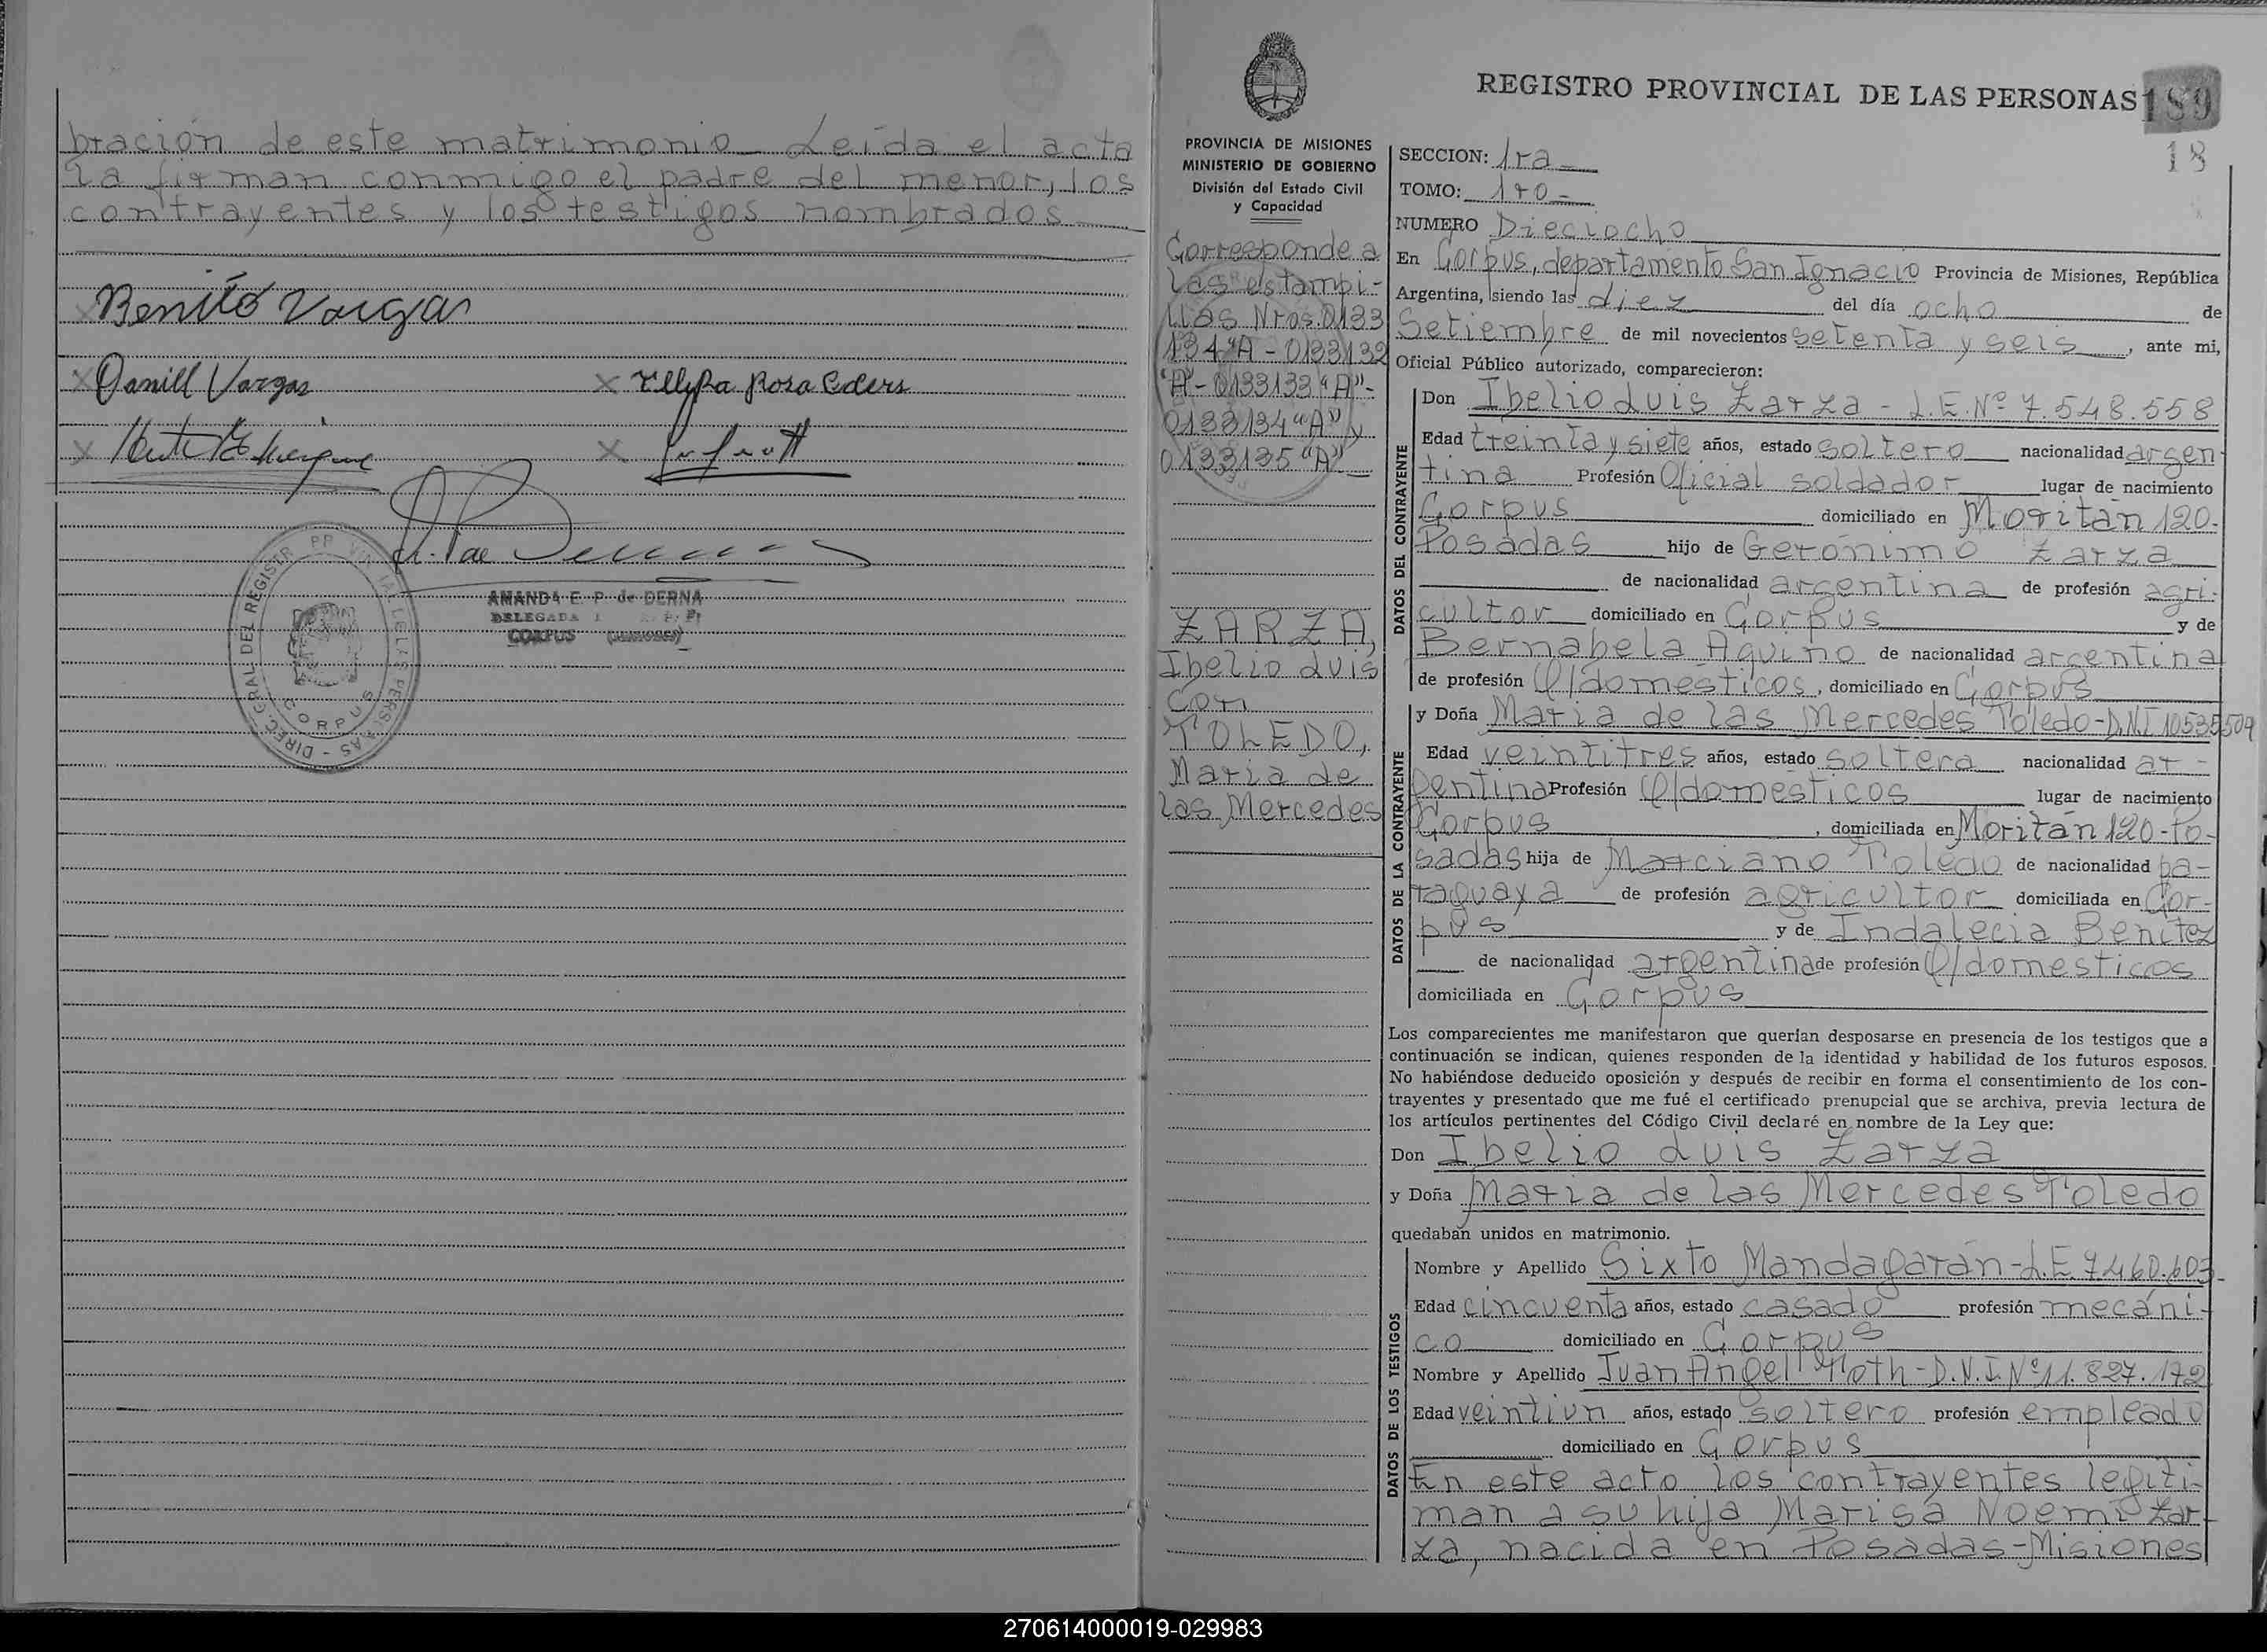 bración de este matrimonio_ Leída el acta
la firman conmigo el padre del menor, los
contrayentes y los testigos nombrados
Benito Vargas
Daniel Vargas
Rosa
AMANDA E. P. de DERNA
DELEGADA
CORPUS (MISIONES)
CORPUS
REGISTRO PROVINCIAL DE LAS PERSONAS
189
18
PROVINCIA DE MISIONES
MINISTERIO DE GOBIERNO
División del Estado Civil
y Capacidad
Corresponde a
las estampi-
llas Nros. 0133
134"A" - 0133132
"A" - 0133133 "A" -
0133134 "A" y
0133135 "A"
ZARZA,
Ibelio Luis
con
TOLEDO,
Maria de
las Mercedes
SECCION: 1ra
TOMO: 1º
NUMERO Dieciocho
En Corpus, departamento San Ignacio Provincia de Misiones, República
Argentina, siendo las diez del día ocho de
Setiembre de mil novecientos setenta y seis, ante mi,
Oficial Público autorizado, comparecieron:
DATOS DEL CONTRAYENTE
Don Ibelio Luis Zarza - L.E. Nº 7.548.558
Edad treinta y siete años, estado soltero nacionalidad argen
tina Profesión Oficial soldador lugar de nacimiento
Corpus domiciliado en Moritán 120-
Posadas hijo de Gerónimo Zarza
de nacionalidad argentina de profesión agri-
cultor domiciliado en Corpus y de
Bernabela Aquino de nacionalidad argentina
de profesión Q/domésticos, domiciliado en Corpus
DATOS DE LA CONTRAYENTE
y Doña Maria de las Mercedes Toledo - D.N.I 10535509
Edad veintitres años, estado soltera nacionalidad ar-
gentina Profesión Q/domésticos lugar de nacimiento
Corpus, domiciliada en Moritán 120-Po-
sadas hija de Marciano Toledo de nacionalidad pa-
raguaya de profesión agricultor domiciliada en Cor-
pus y de Indalecia Benítez
de nacionalidad argentina de profesión Q/domesticos
domiciliada en Corpus
Los comparecientes me manifestaron que querían desposarse en presencia de los testigos que a
continuación se indican, quienes responden de la identidad y habilidad de los futuros esposos.
No habiéndose deducido oposición y después de recibir en forma el consentimiento de los con-
trayentes y presentado que me fué el certificado prenupcial que se archiva, previa lectura de
los artículos pertinentes del Código Civil declaré en nombre de la Ley que:
Don Ibelio Luis Zarza
y Doña Maria de las Mercedes Toledo
quedaban unidos en matrimonio.
DATOS DE LOS TESTIGOS
Nombre y Apellido Sixto Mandagarán - L.E. 7.460.603
Edad cincuenta años, estado casado profesión mecáni-
co domiciliado en Corpus
Nombre y Apellido Juan Angel Noth - D.N.I. Nº 11.827.172
Edad veintiun años, estado soltero profesión empleado
domiciliado en Corpus
En este acto los contrayentes legiti-
man a su hija Marisa Noemi Zar-
za, nacida en Posadas-Misiones
270614000019-029983